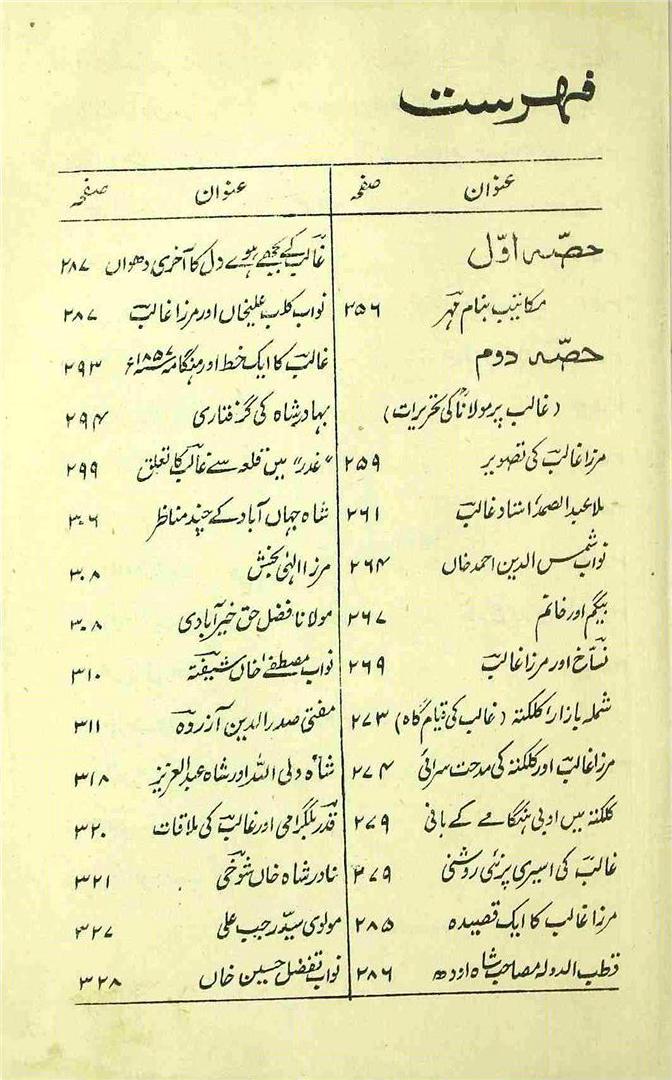 فہرست
عنوان صفحہ
حصّہ اوّل
مکاتیب بنام مہر ۲۵۶
حصّہ دوم
(غالب پر مولانا کی تحریرات)
مرزا غالب کی تصویر ۲۵۹
ملا عبدالصمد استاد غالب ۲۶۱
نواب شمس الدین احمد خاں ۲۶۴
بیگم اور خانم ۲۶۷
نساخ اور مرزا غالب ۲۶۹
شملہ بازار کلکتہ (غالب کی قیام گاہ) ۲۷۳
مرزا غالب اور کلکتہ کی مدحت سرائی ۲۷۴
کلکتہ میں ادبی ہنگامے کے بانی ۲۷۹
غالب کی اسیری پر نئی روشنی ۲۷۹
مرزا غالب کا ایک قصیدہ ۲۸۵
قطب الدولہ مصاحب شاہ اودھ ۲۸۶
عنوان صفحہ
غالب کے بجھے ہوے دل کا آخری دھواں ۲۸۷
نواب کلب علیخاں اور مرزا غالب ۲۸۷
غالب کا ایک خط اور ہنگامہ ۱۸۵۷ء ۲۹۳
بہادر شاہ کی گرفتاری ۲۹۴
"غدر" میں قلعہ سے غالب کا تعلق ۲۹۹
شاہ جہاں آباد کے چند مناظر ۳۰۶
مرزا الٰہی بخش ۳۰۸
مولانا فضل حق خیرآبادی ۳۰۸
نواب مصطفےٰ خاں شیفتہ ۳۱۰
مفتی صدر الدین آزردہ ۳۱۱
شاہ ولی اللہ اور شاہ عبدالعزیز ۳۱۸
قدر بلگرامی اور غالب کی ملاقات ۳۲۰
نادر شاہ خاں شوخی ۳۲۱
مولوی سیّد رجب علی ۳۲۷
نواب تفضل حسین خاں ۳۲۸